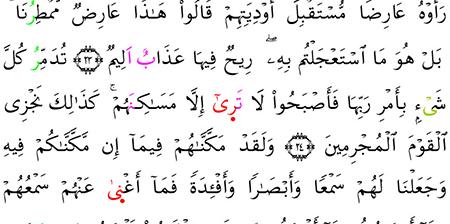 رَأَوْهُ عَارِضًا مُّسْتَقْبِلَ أَوْدِيَتِهِمْ قَالُوا۟ هَٰذَا عَارِضٌ مُّمْطِرُنَا
بَلْ هُوَ مَا ٱسْتَعْجَلْتُم بِهِۦ ۖ رِيحٌ فِيهَا عَذَابٌ اَلِيمٌ ﴿٢٣﴾ تُدَمِّرُ كُلَّ
شَىْءِۭ بِأَمْرِ رَبِّهَا فَأَصْبَحُوا۟ لَا تَرٜىٰٓ إِلَّا مَسَٰكِنَهُمْ ۚ كَذَٰلِكَ نَجْزِى
ٱلْقَوْمَ ٱلْمُجْرِمِينَ ﴿٢٤﴾ وَلَقَدْ مَكَّنَّٰهُمْ فِيمَآ إِن مَّكَّنَّٰكُمْ فِيهِ
وَجَعَلْنَا لَهُمْ سَمْعًا وَأَبْصَٰرًا وَأَفْـِٔدَةً فَمَآ أَغْنٜىٰ عَنْهُمْ سَمْعُهُمْ